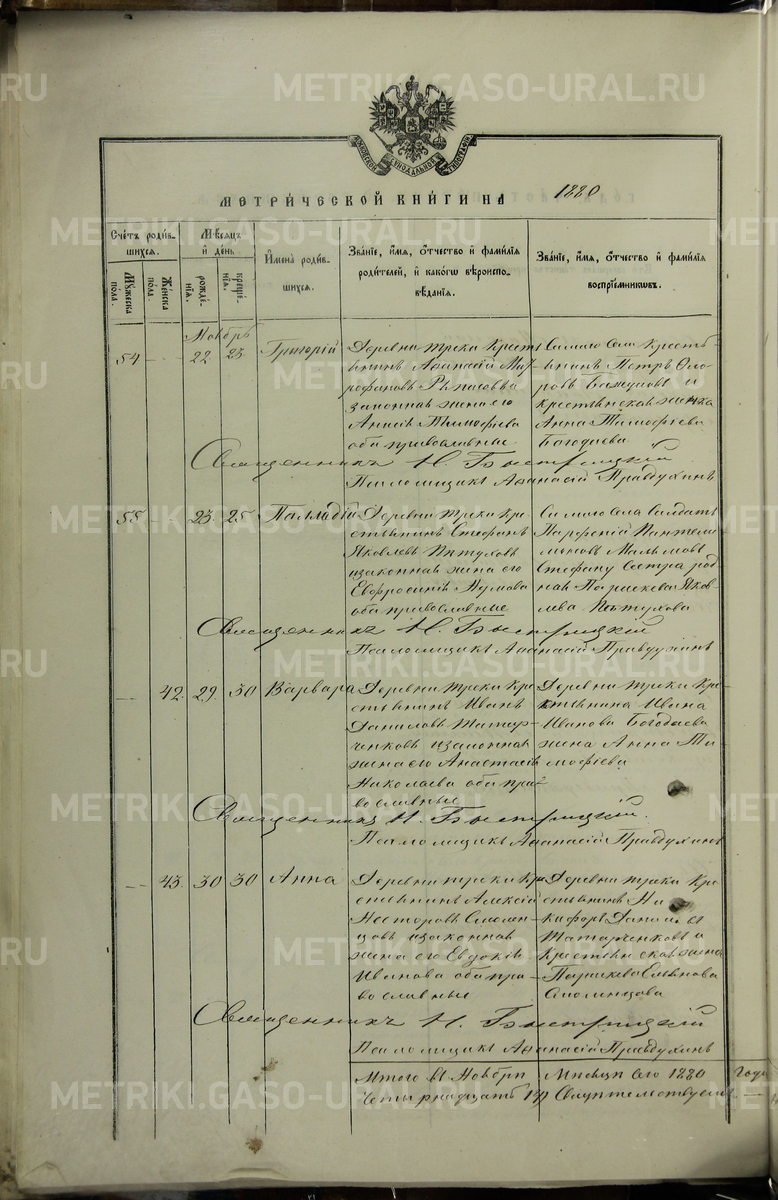 METRIKI.GASO-URAL.RU
МОСКОВСКОЙ СѴНОДАЛЬНОЙ ТИПОГРАФІИ
МЕТРИ́ЧЕСКОЙ КНИ́ГИ НА 1880
Сче́тъ роди́в-
шихся.
Мꙋ́жеска по́ла.
Же́нска по́ла.
М҃цъ
и҆ де́нь
рожде́-
нїѧ.
креще́-
нїѧ.
И҆мена̀ роди́в-
шихся.
Зва́нїе, и҆́мѧ, ѻ҆́тчество и҆ фами́лїѧ
роди́телей, и҆ како́гѡ вѣроиспо-
вѣ́данїѧ.
Зва́нїе, и҆́мѧ, ѻ҆́тчество и҆ фами́лїѧ
воспрїе́мниковъ.
Ноябрь
54 22 23 Григорій
Деревни Треки Кресть
янинъ Афанасій
законная жена его
Анисія Тимофеева
оба православные
Самаго Села Кресть-
янинъ Петръ Ѳедо
ровъ и
крестьянская женка
Анна Тимофеева
Богодаева
Священникъ Н. Быстрицкій
Псаломщикъ Аѳанасій Правдухинъ
55 23 25 Палладій
Деревни Треки Кре
стьянинъ Стефанъ
Яковлевъ Пѣтуховъ
и законная жена его
Евфросинія Наумова
оба православные
Самаго Села Солдатъ
Парфеній Пантели
моновъ
Стефану Сестра род
ная Параскева Яков-
лева Пѣтухова
Священникъ Н. Быстрицкій
Псаломщикъ Аѳанасій Правдухинъ
42 29 30 Варвара
Деревни Треки Кре
стьянинъ Иванъ
Даниловъ Татар-
ченковъ и законная
жена его Анастасія
Николаева оба пра-
вославные
Деревни Треки Кре-
стьянина Ивана
Иванова Богодаева
жена Анна Ти
мофѣева
Священникъ Н. Быстрицкій.
Псаломщикъ Аѳанасій Правдухинъ
43 30 30 Анна
Деревни Треки Кре
стьянинъ Алексій
Несторовъ Смолен-
цовъ и законная
жена его Евдокія
Иванова оба пра-
вославные
Деревни Треки Кре-
стьянинъ Ни
кифоръ Данилов
Татарченковъ и
Крестьянская жена
Параскева
Смоленцова
Священникъ Н. Быстрицкій
Псаломщикъ Аѳанасій Правдухинъ
Итого въ Ноябрѣ Мѣсяцѣ сего 1880 Года
Четырнадцать Свидетельствуемъ